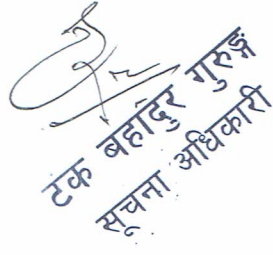 टक बहादुर गुरुङ्ग
सूचना अधिकारी